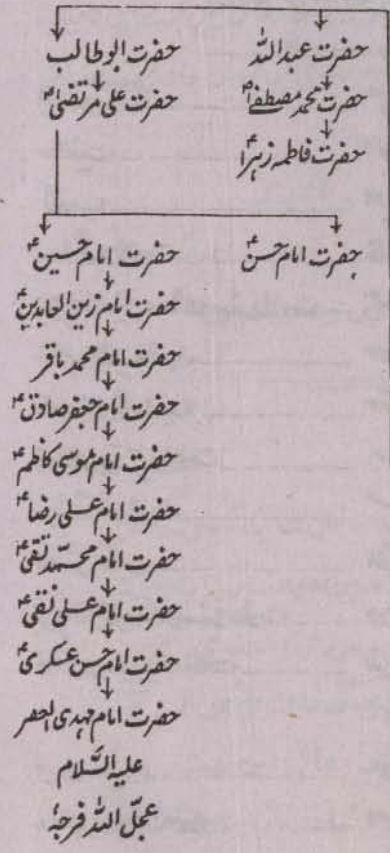 حضرت عبداللہ
حضرت ابوطالب
حضرت محمد مصطفےٰ ؐ
حضرت علی مرتضیٰ ؑ
حضرت فاطمہ زہرا ؑ
حضرت امام حسن ؑ
حضرت امام حسین ؑ
حضرت امام زین العابدین ؑ
حضرت امام محمد باقر
حضرت امام جعفر صادق ؑ
حضرت امام موسیٰ کاظم ؑ
حضرت امام علی رضا ؑ
حضرت امام محمّد تقی ؑ
حضرت امام علی نقی ؑ
حضرت امام حسن عسکری ؑ
حضرت امام مہدی العصر
علیہ السَّلام
عجّل اللہ فرجہٗ